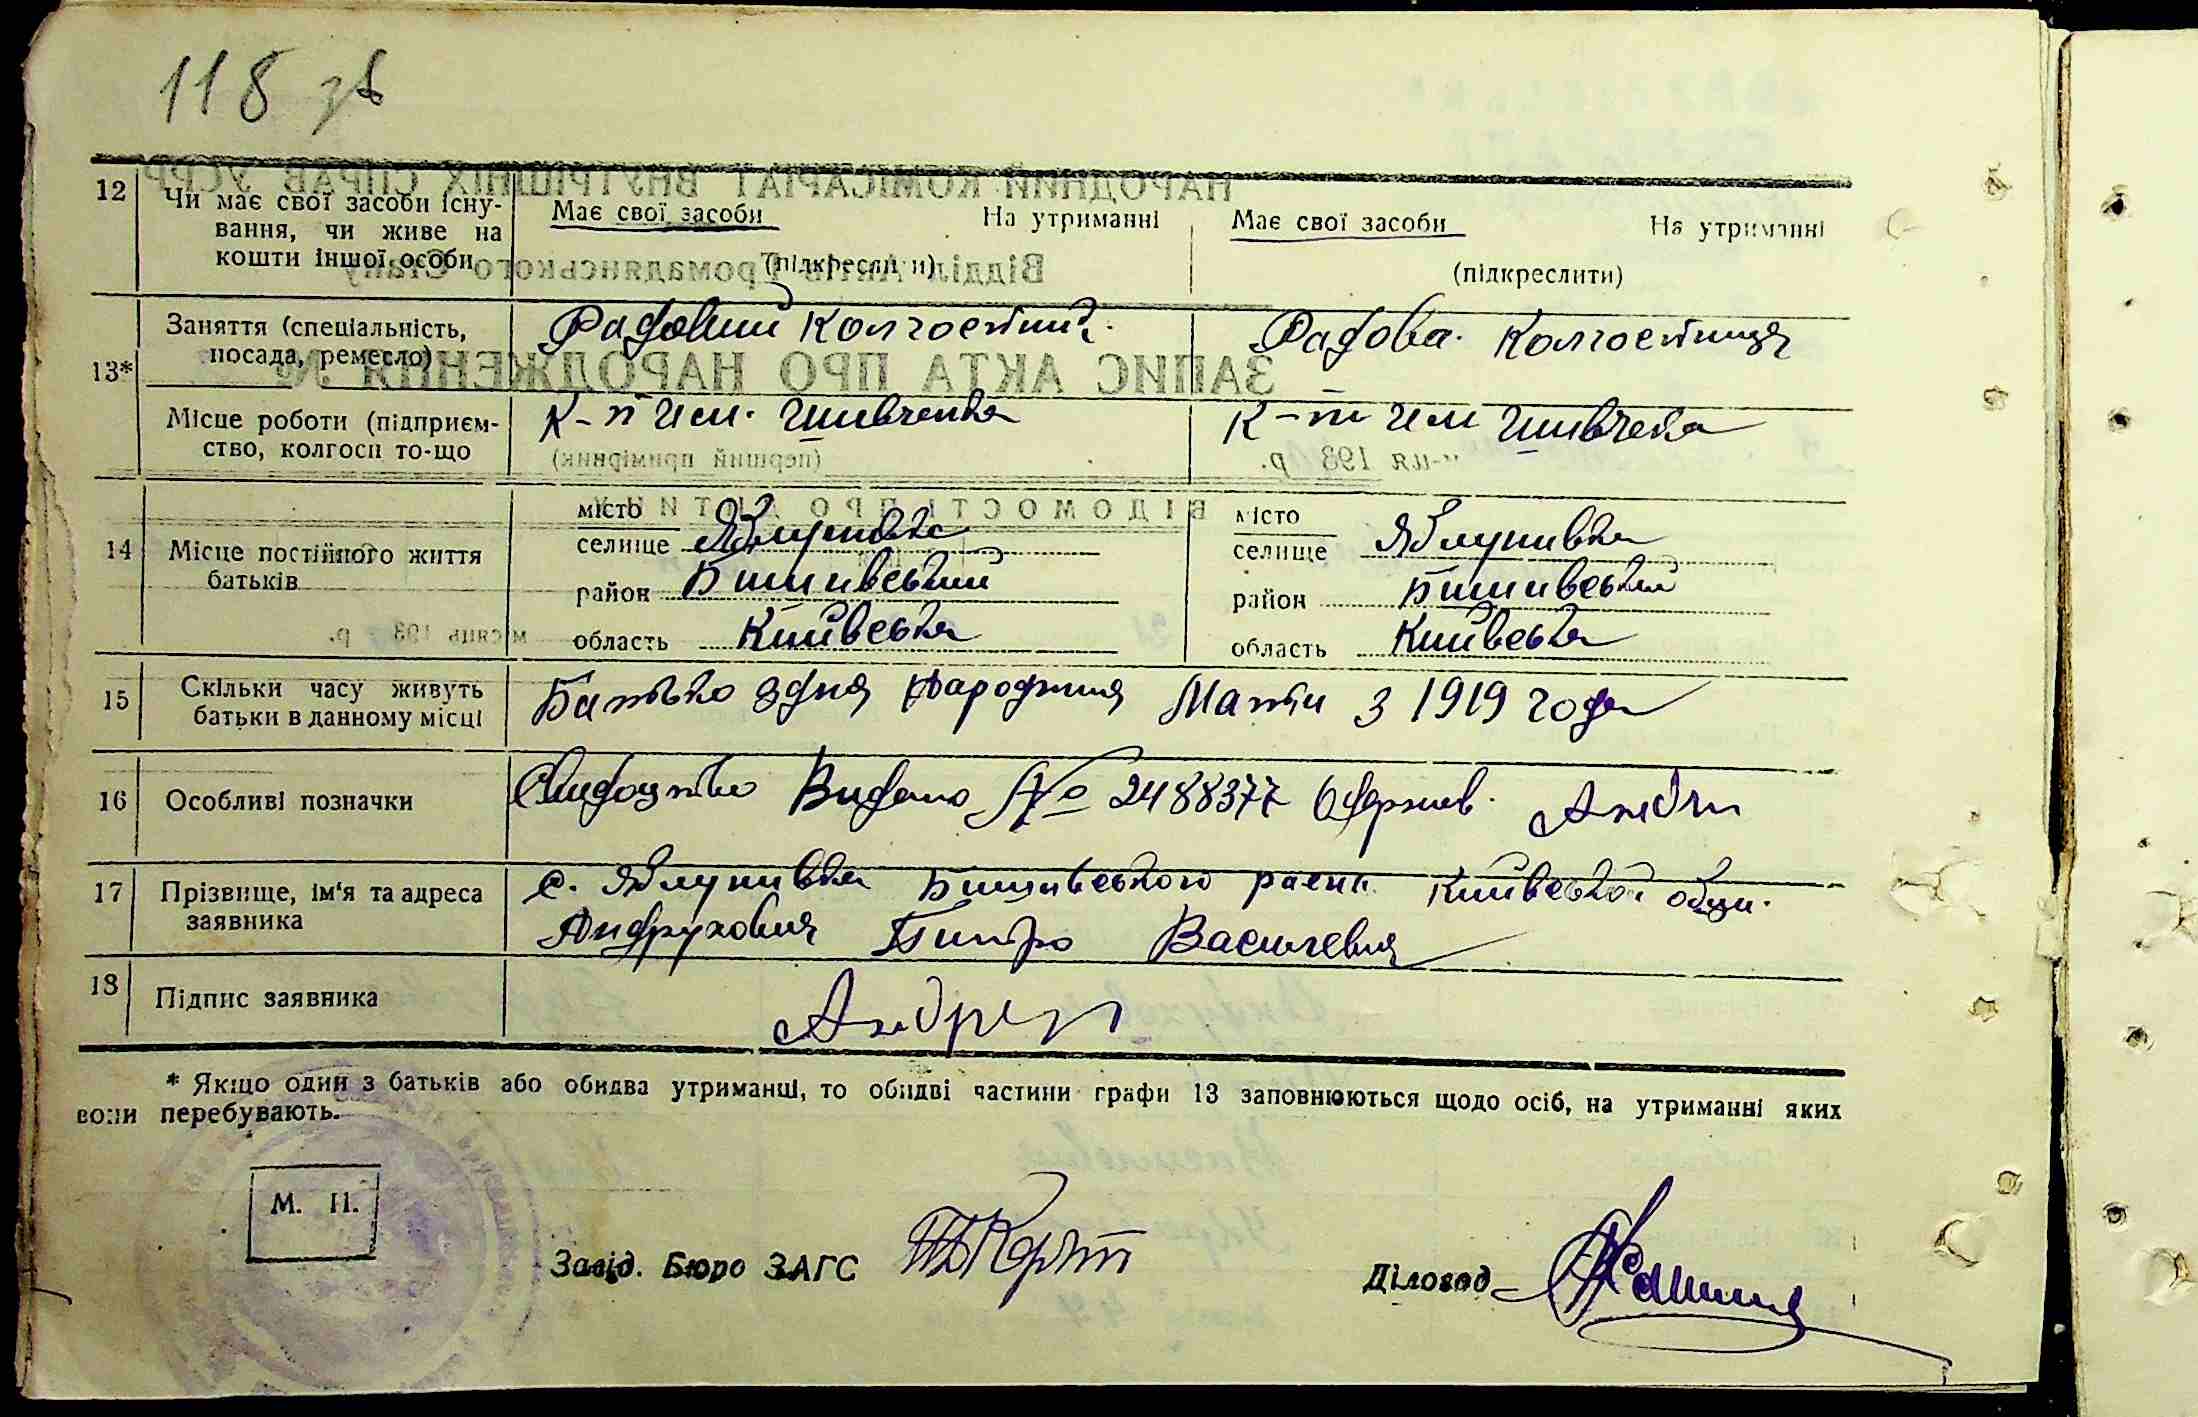 118 зв
12 Чи має свої засоби існу-
вання, чи живе на
кошти іншої особи
Має свої засоби На утриманні
(підкреслити)
Має свої засоби На утриманні
(підкреслити)
13* Заняття (спеціальність,
посада, ремесло)
Радовий Колгоспник
Радова. Колгоспниця
Місце роботи (підприєм-
ство, колгосп то-що
К-п им. Шивченка
К-п им Шивченка
14 Місце постійного життя
батьків
місто
селище Яблунивка
район Бишивський
область Київська
місто
селище Яблунивка
район Бишивський
область Київська
15 Скільки часу живуть
батьки в данному місці
Батько здня Народжиня Мати з 1919 года
16 Особливі позначки
Свидоцтво Видано № 2488377 Одержив.
17 Прізвище, ім'я та адреса
заявника
с. Яблунивка Бишивського раена Київськой обл.
Андрухович Питро Василевич
18 Підпис заявника
* Якщо один з батьків або обидва утриманці, то обидві частини графи 13 заповнюються щодо осіб, на утриманні яких
вони перебувають.
М. П.
Завід. Бюро ЗАГС
Діловод